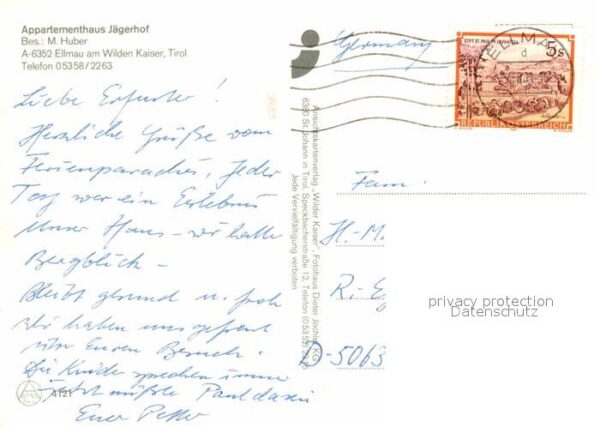 Appartementhaus Jägerhof
Bes.: M. Huber
A-6352 Ellmau am Wilden Kaiser, Tirol
Telefon 05358/2263
Liebe Erfurter!
Herzliche Grüße vom
Ferienparadies, jeder
Tag war ein Erlebnis
Unser Haus – wir hatten
Bergblick –
Bleibt gesund u. froh
Wir haben uns gefreut
über Euren Besuch.
Die Kinder sprechen immer
jetzt müßte Paul dasein
Euer
4121
Ansichtskartenverlag „Wilder Kaiser", Fotohaus Dieter Jöchler KG
6380 St. Johann in Tirol, Speckbacherstraße 12, Telefon (05352)
Jede Vervielfältigung verboten
Germany
ELLMAU
STIFT ST. PAUL IM LAVANTTAL
5s
REPUBLIK ÖSTERREICH
Fam.
H.-M.
R.-E
D-5063
privacy protection
Datenschutz